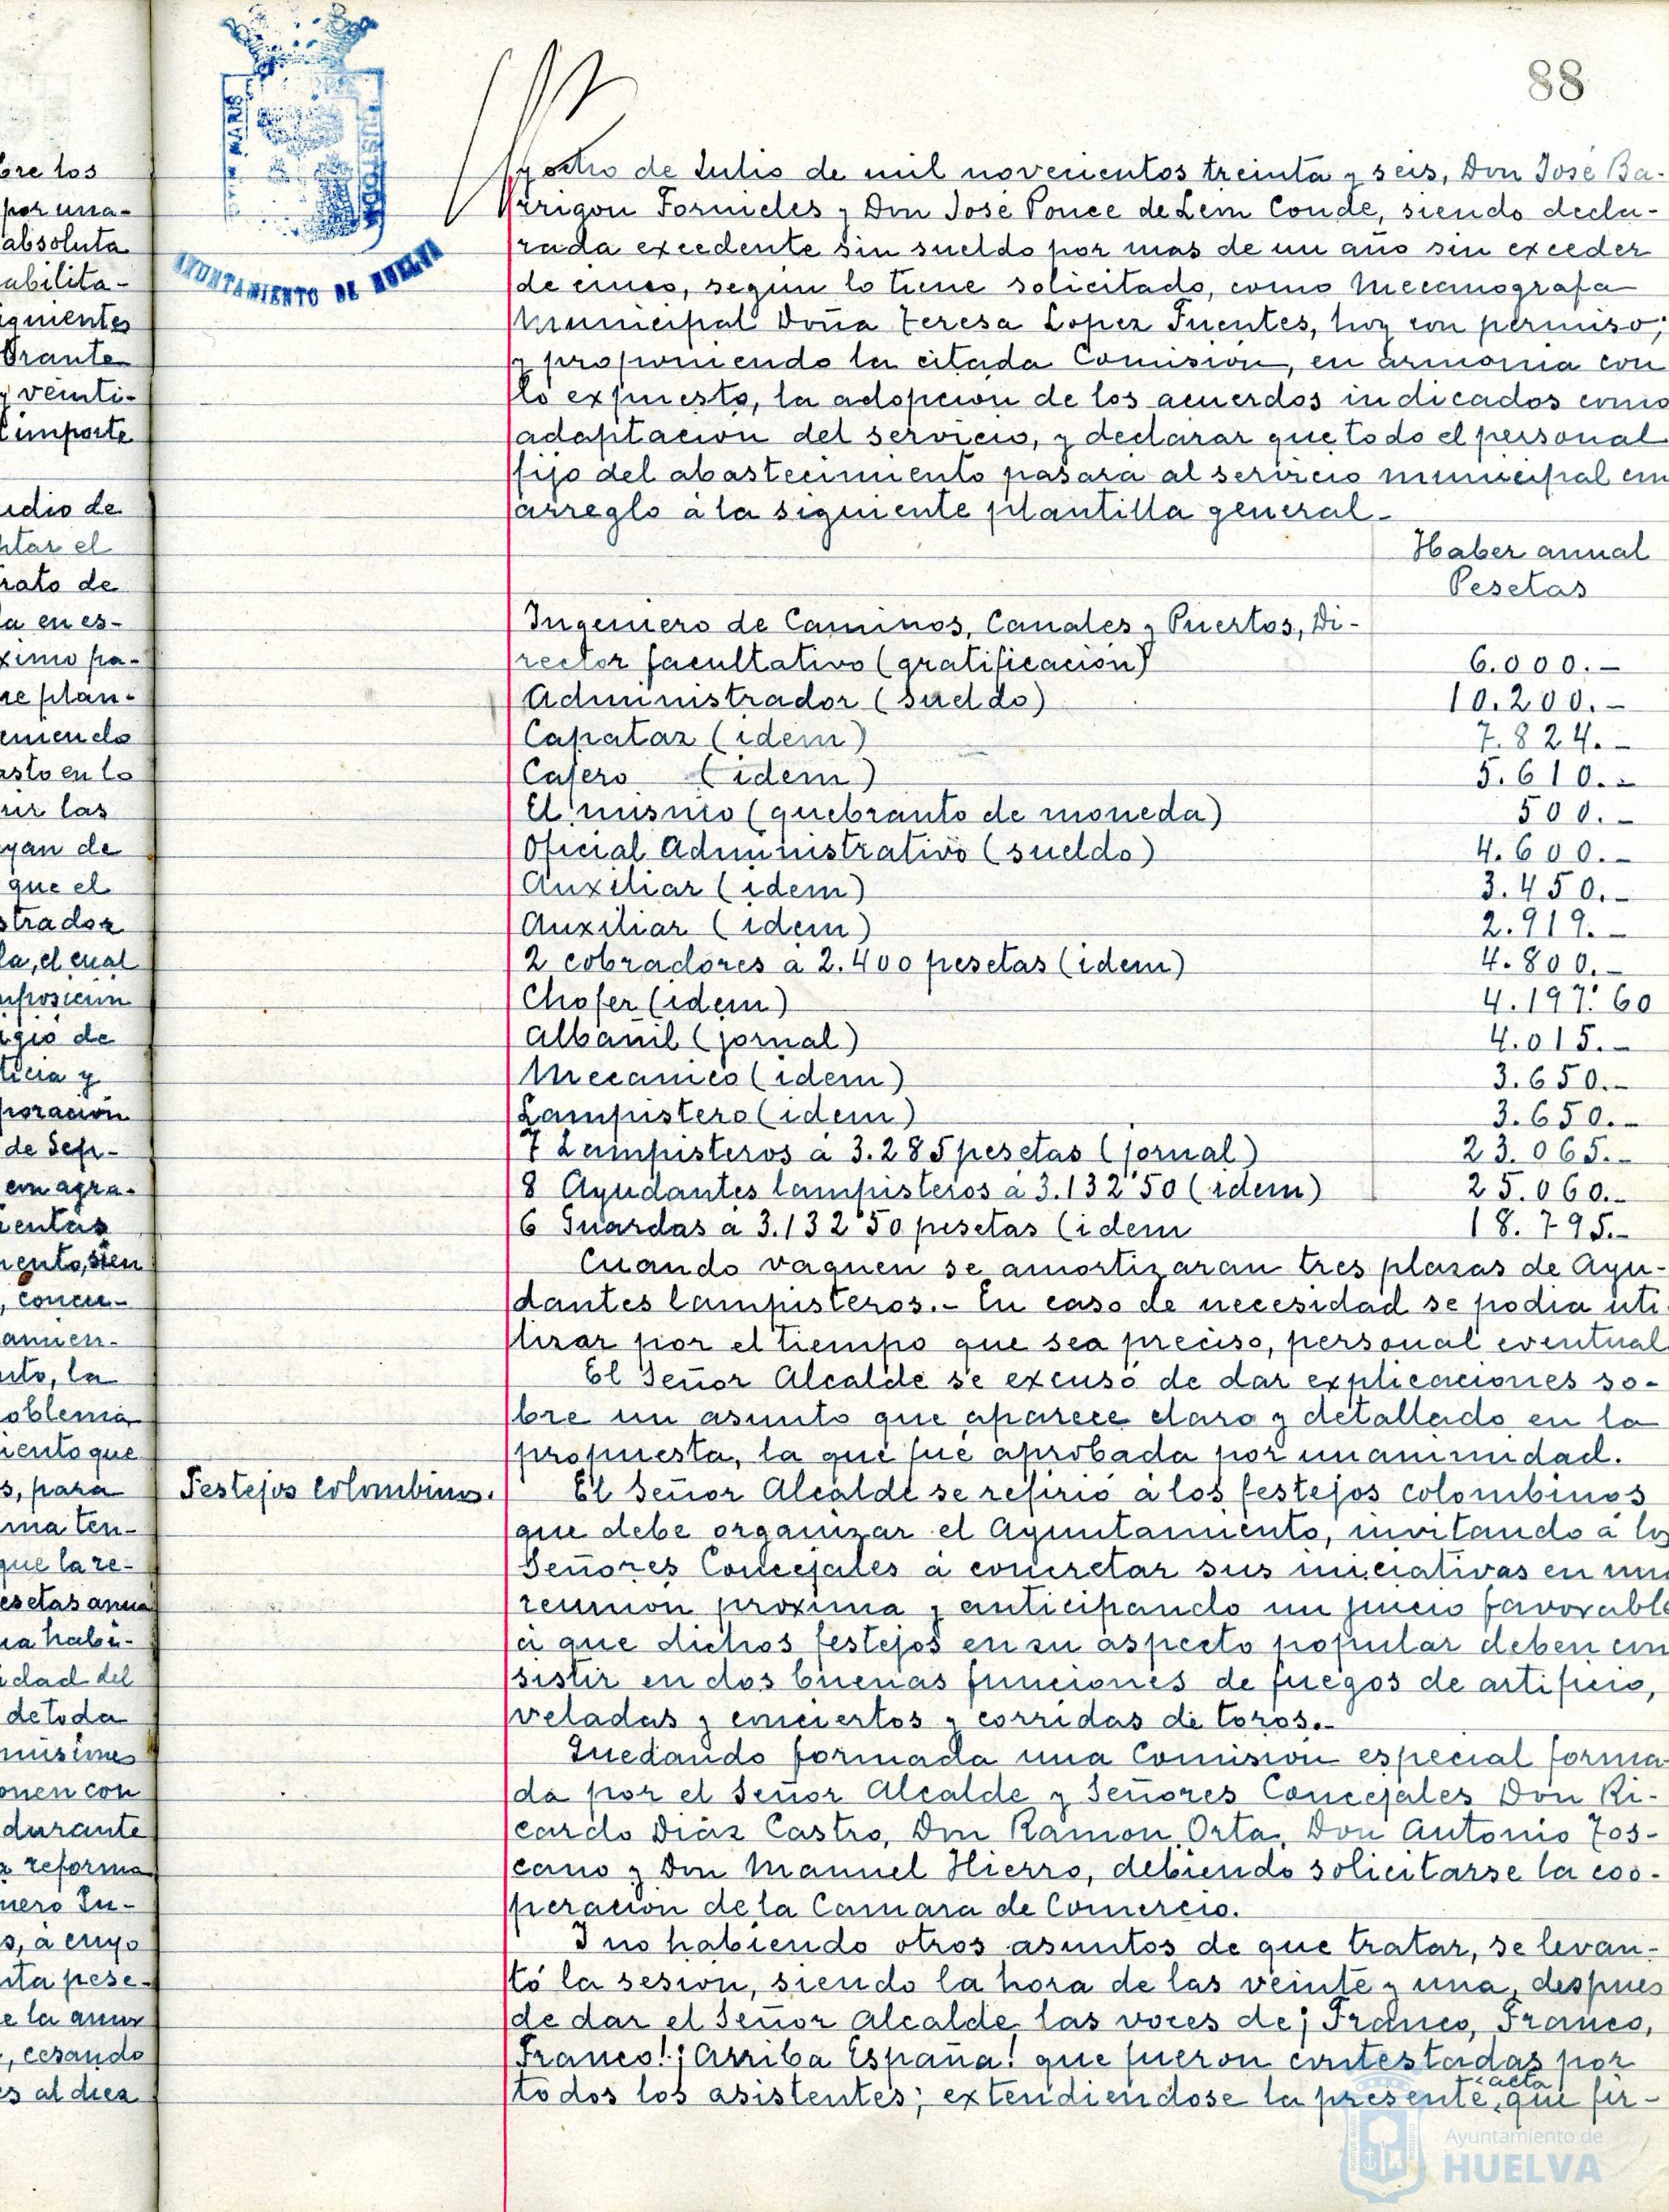 88
PORTUS MARIS
CUSTODIA
AYUNTAMIENTO DE HUELVA
bre los
por una-
absoluta
abilita-
iguientes
brante
y veinti-
l importe
udio de
ptar el
rato de
a en es-
ximo pa-
re plan-
emiendo
asto en lo
uir las
ayan de
que el
strador
la, el cual
mposicion
igio de
ticia y
poracion
de Sep-
con agra-
ientas
mento, sien
, concu-
amien-
nto, la
oblema
iento que
s, para
ma ten-
que la re-
esetas anua
ua habi-
idad del
de toda
misiones
onen con
durante
a reforma
nero In-
s, a cuyo
nta pese-
e la anux
, cesando
es al diez
y ocho de Julio de mil novecientos treinta y seis, Don José Ba-
rrigon Fornieles y Don José Ponce de Leon Conde, siendo decla-
rada excedente sin sueldo por mas de un año sin exceder
de cinco, segun lo tiene solicitado, como Mecanografa
Municipal Doña Teresa Lopez Fuentes, hoy con permiso;
y proponiendo la citada Comision, en armonia con
lo expuesto, la adopcion de los acuerdos indicados como
adaptacion del servicio, y declarar que todo el personal
fijo del abastecimiento pasara al servicio municipal con
arreglo á la siguiente plantilla general-
Haber anual
Pesetas
Ingeniero de Caminos, Canales y Puertos, Di-
rector facultativo (gratificacion) 6.000.-
Administrador (sueldo) 10.200.-
Capataz (idem) 7.824.-
Cajero (idem) 5.610.-
El mismo (quebranto de moneda) 500.-
Oficial Administrativo (sueldo) 4.600.-
Auxiliar (idem) 3.450.-
Auxiliar (idem) 2.919.-
2 cobradores a 2.400 pesetas (idem) 4.800.-
Chofer (idem) 4.197'60
Albañil (jornal) 4.015.-
Mecanico (idem) 3.650.-
Lampistero (idem) 3.650.-
7 Lampisteros a 3.285 pesetas (jornal) 23.065.-
8 Ayudantes lampisteros á 3.132'50 (idem) 25.060.-
6 Guardas a 3.132'50 pesetas (idem 18.795.-
Cuando vaquen se amortizaran tres plazas de Ayu-
dantes lampisteros.- En caso de necesidad se podia uti-
lizar por el tiempo que sea preciso, personal eventual
El Señor Alcalde se excusó de dar explicaciones so-
bre un asunto que aparece claro y detallado en la
propuesta, la que fué aprobada por unanimidad.
Festejos colombinos.
El Señor Alcalde se refirió á los festejos colombinos
que debe organizar el Ayuntamiento, invitando á los
Señores Concejales á concretar sus iniciativas en una
reunion proxima y anticipando un juicio favorable
á que dichos festejos en su aspecto popular deben con
sistir en dos buenas funciones de fuegos de artificio,
veladas y conciertos y corridas de toros.-
Quedando formada una Comision especial forma-
da por el Señor Alcalde y Señores Concejales Don Ri-
cardo Diaz Castro, Don Ramon Orta, Don Antonio Tos-
cano y Don Manuel Hierro, debiendo solicitarse la coo-
peracion de la Camara de Comercio.
Y no habiendo otros asuntos de que tratar, se levan-
tó la sesion, siendo la hora de las veinte y una, despues
de dar el Señor Alcalde las voces de ¡Franco, Franco,
Franco! ¡Arriba España! que fueron contestadas por
todos los asistentes; extendiendose la presente acta que fir-
Ayuntamiento de
HUELVA